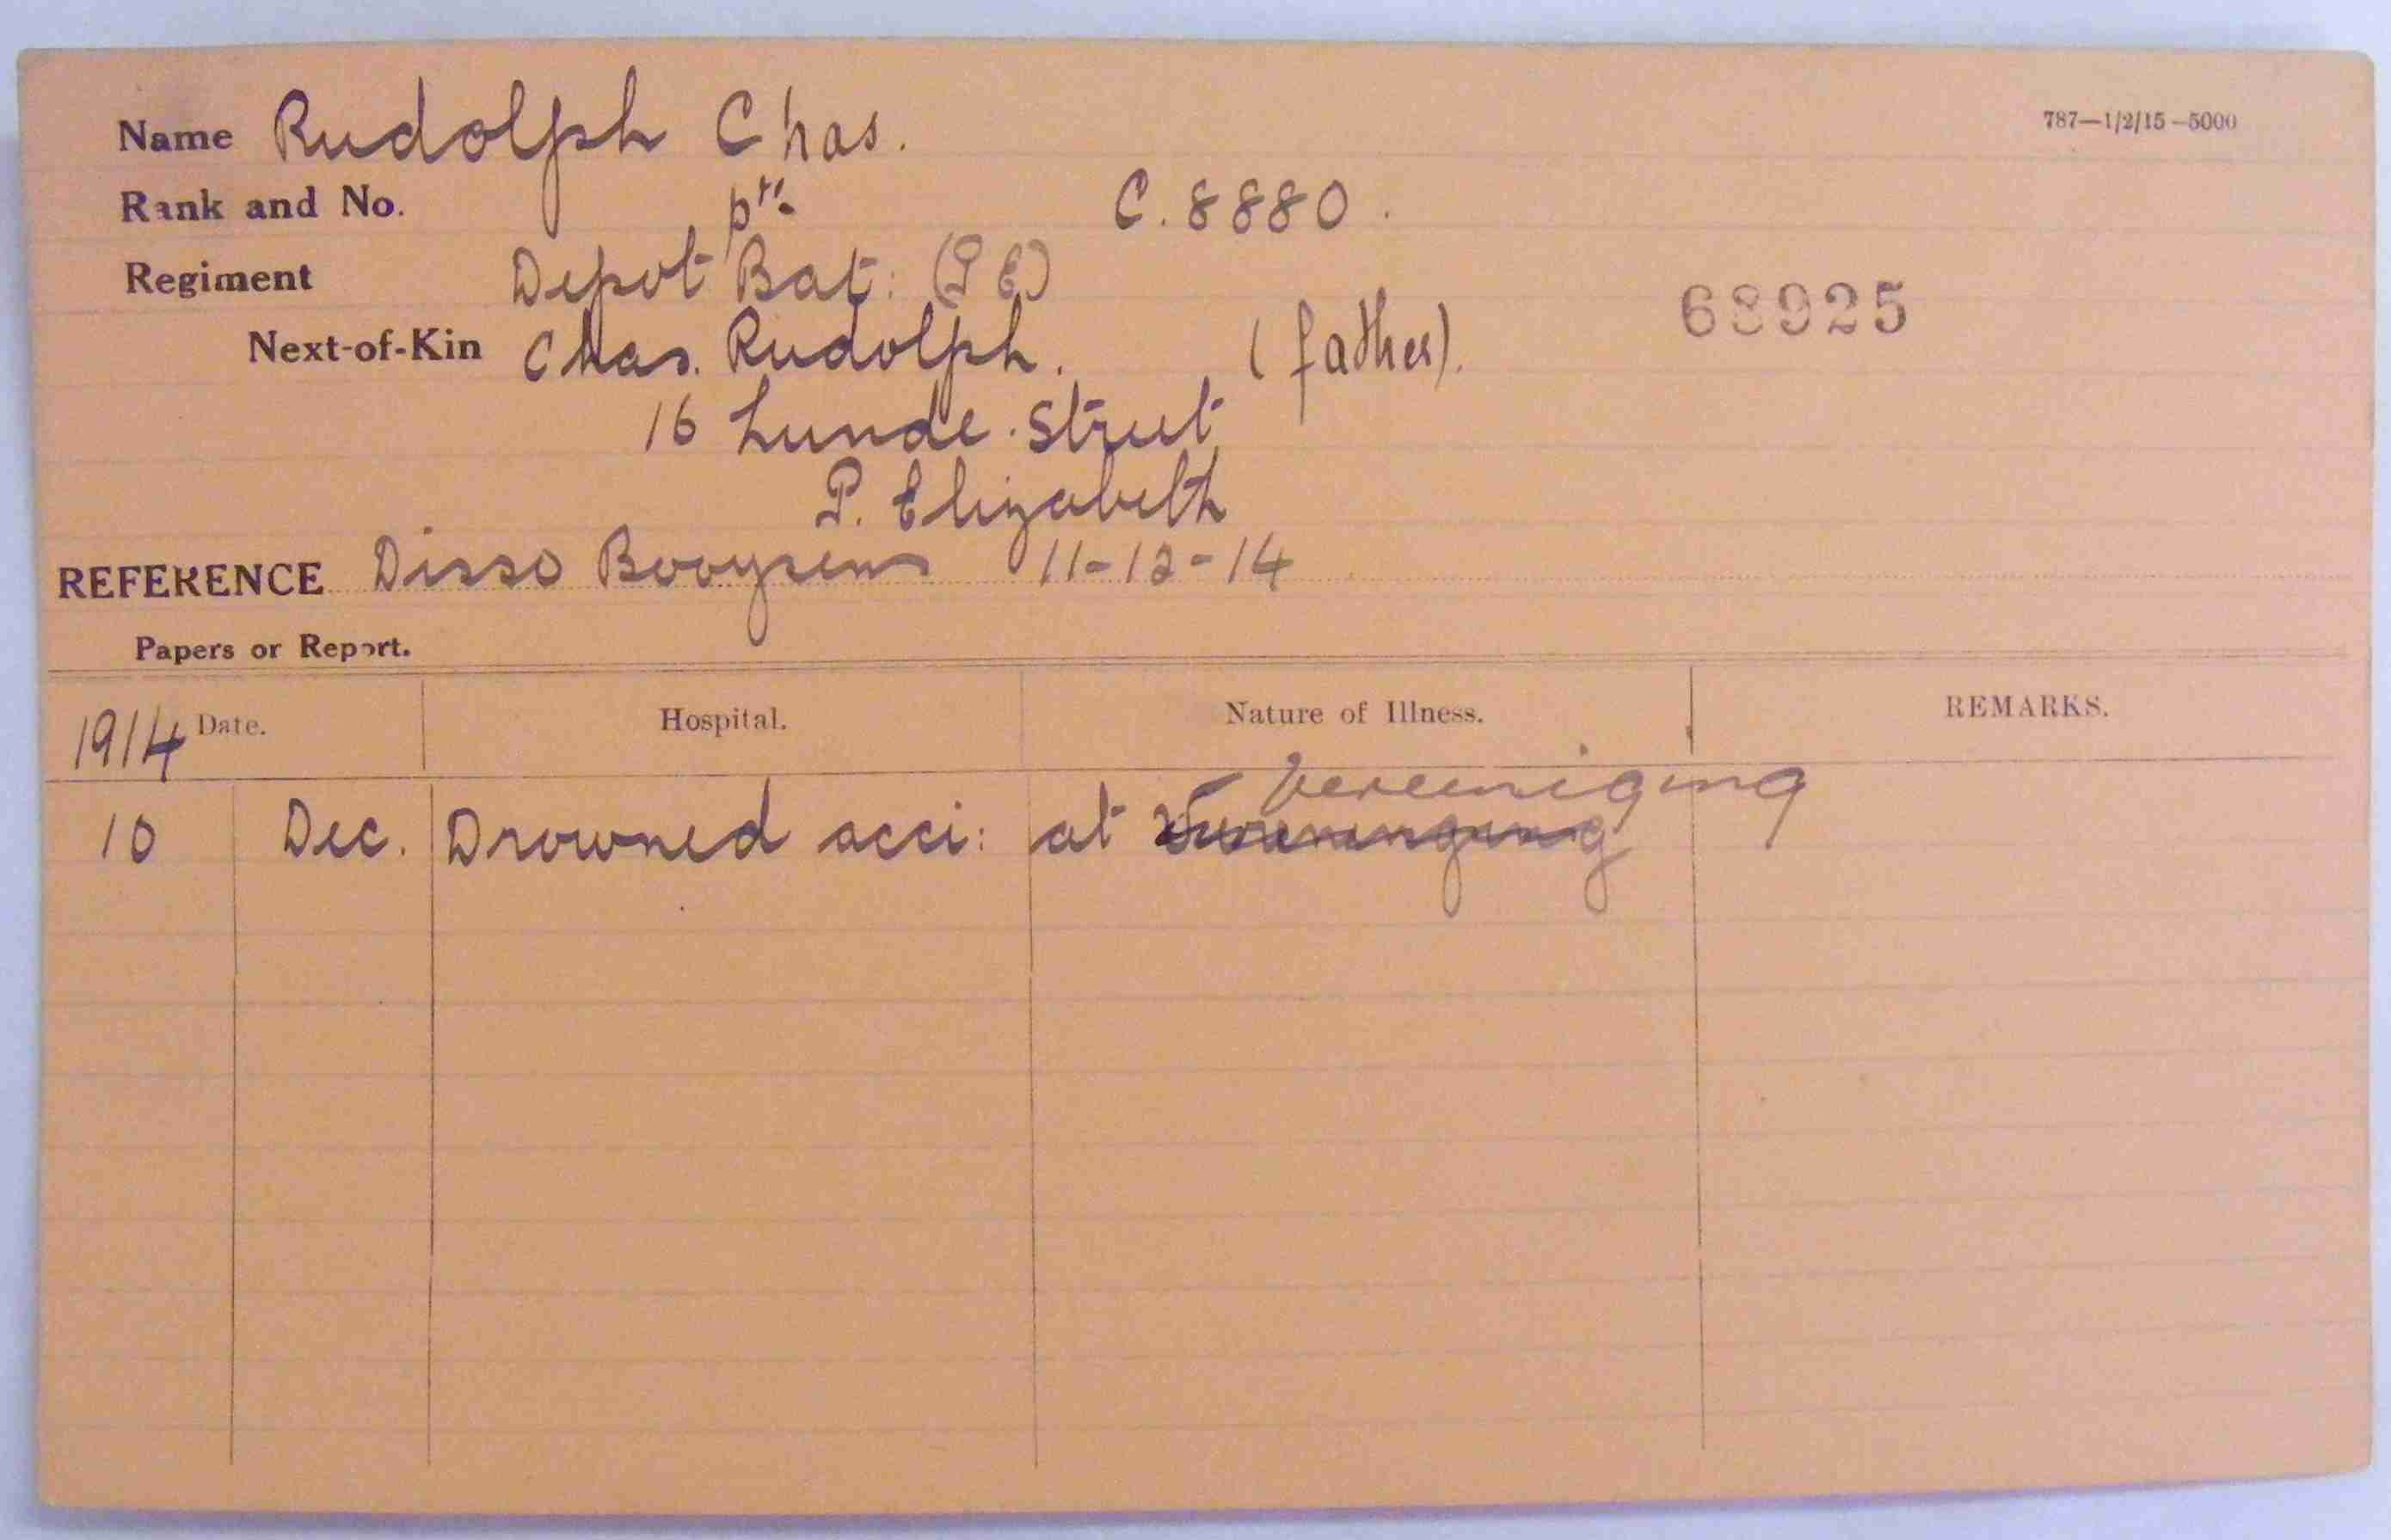 787—1/2/15—5000
Name Rudolph Chas.
Rank and No. pte. C. 8880.
Regiment Depot Bat: (P E)
68925
Next-of-Kin Chas. Rudolph. (father).
16 Lunde Street
P. Elizabeth
REFERENCE Disso Booysens 11-12-14
Papers or Report.
1914 Date. Hospital. Nature of Illness. REMARKS.
Vereeniging
10 Dec. Drowned acci: at